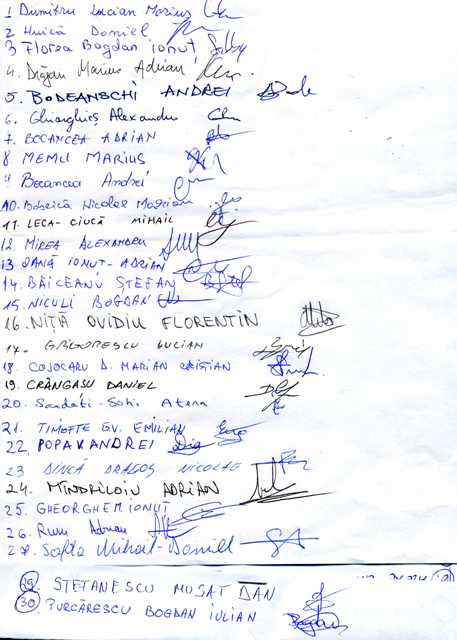 1 Dumitru Lucian Marius
2 Huică Daniel
3 Florea Bogdan ionuț
4. Drăgan Marius Adrian
5. BODEANSCHI ANDREI
6. Ghiarghieș Alexandru
7. BOCANCEA ADRIAN
8 MEMLI MARIUS
9 Bocancea Andrei
10. Nicolae Marian
11. LECA-CIUCĂ MIHAIL
12 MIREA ALEXANDRU
13 IONUȚ-ADRIAN
14. BĂICEANU ȘTEFAN
15. NICULI BOGDAN
16. NIȚĂ OVIDIU FLORENTIN
17. GRIGORESCU LUCIAN
18. COJOCARU D. MARIAN CRISTIAN
19. CRÂNGAȘU DANIEL
20. Atena
21. TIMOFTE GV. EMILIAN
22. POPA V. ANDREI
23 DINCĂ DRAGOȘ NICOLAE
24. MÎNDRILOIU ADRIAN
25. GHEORGHE M. IONUȚ
26. Rusu Adrian
27. Safta Mihail-Daniel
29. ȘTEFANESCU MUȘAT DAN
30. PURCĂRESCU BOGDAN IULIAN